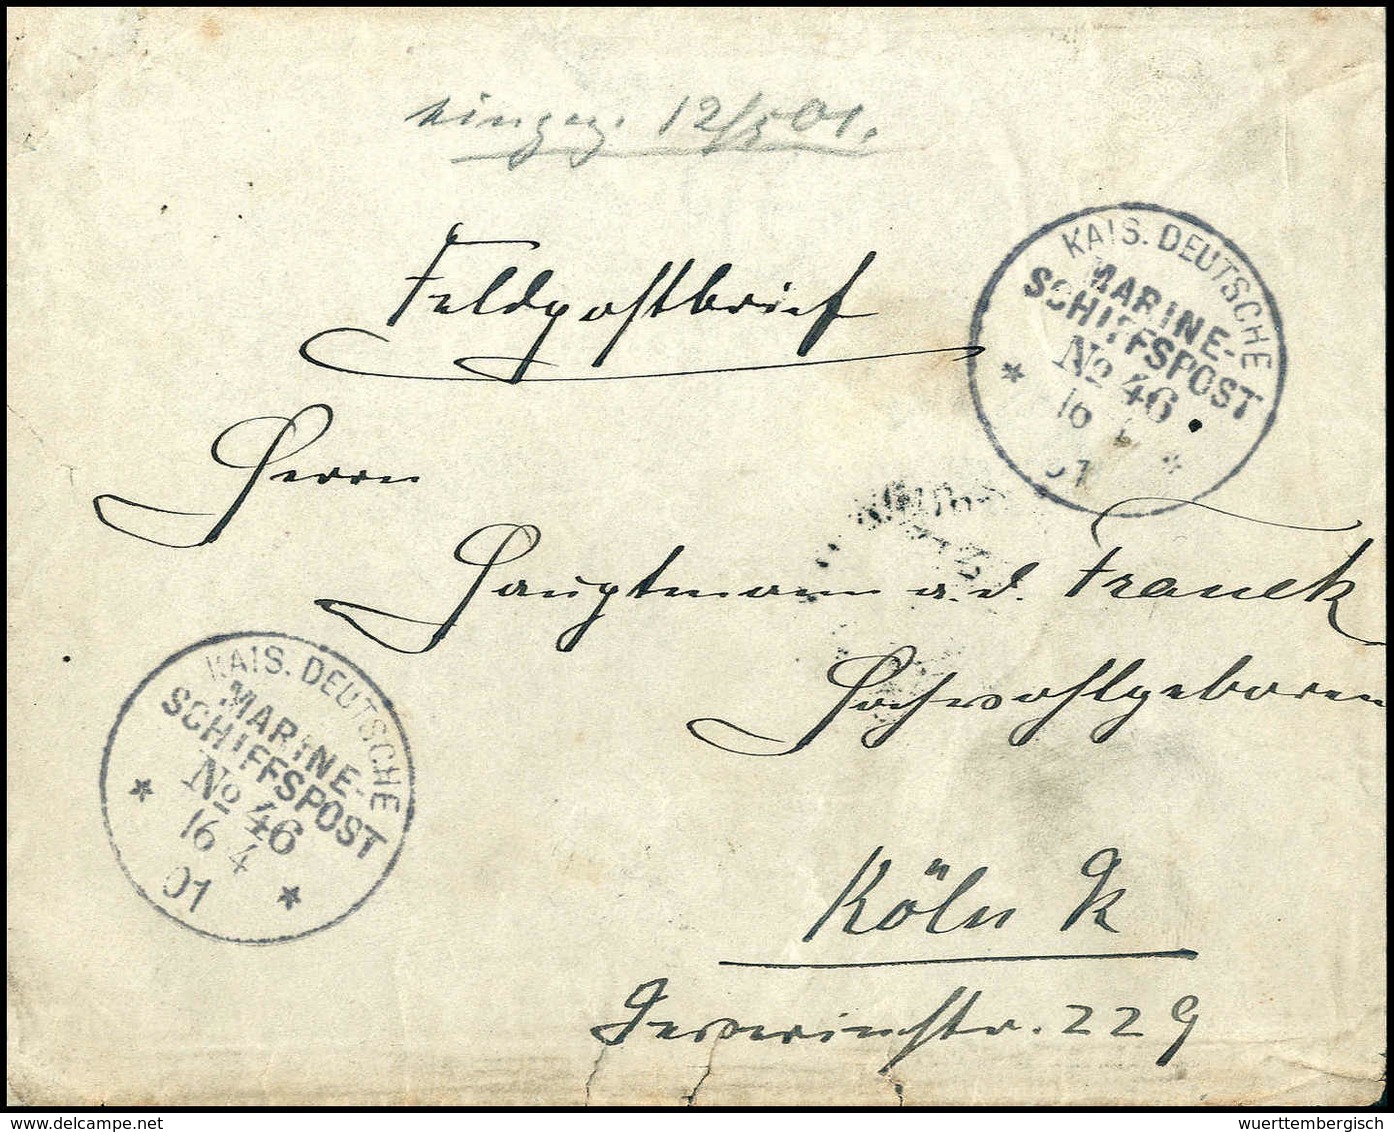 eingeg. 12/5 01.
Feldpostbrief
KAIS. DEUTSCHE
MARINE-
SCHIFFSPOST
No 46
16 4
01
Herrn
Hauptmann a.d. Franck
Hochwohlgeboren
KAIS. DEUTSCHE
MARINE-
SCHIFFSPOST
No 46
16 4
01
Köln
Severinstr. 229
delcampe.net
wuerttembergisch